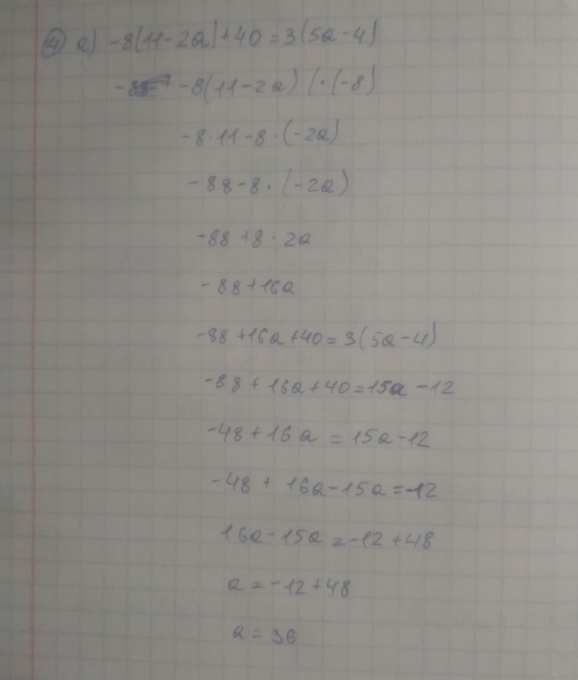 4) a) -8(11-2a)+40=3(5a-4)
-8(11-2a) | · (-8)
-8·11-8·(-2a)
-88-8·(-2a)
-88+8·2a
-88+16a
-88+16a+40=3(5a-4)
-88+16a+40=15a-12
-48+16a=15a-12
-48+16a-15a=-12
16a-15a=-12+48
a=-12+48
a=36